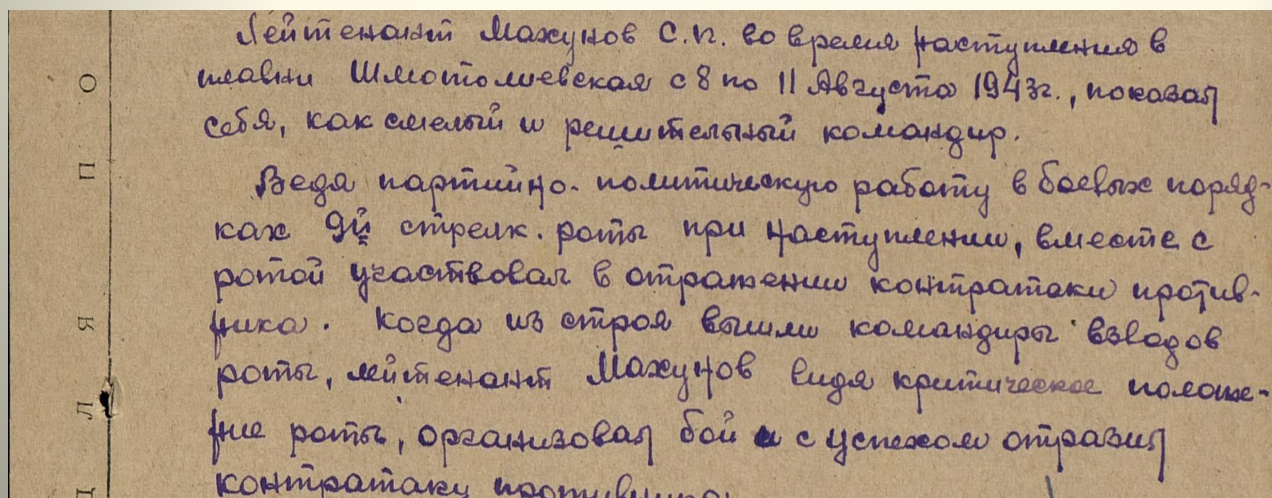 Лейтенант Махунов С.П. во время наступления в
плавни Шмотолиевская с 8 по 11 Августа 1943г., показал
себя, как смелый и решительный командир.
Ведя партийно-политическую работу в боевых поряд-
ках 9й стрелк. роты при наступлении, вместе с
ротой участвовал в отражении контратаки против-
ника. Когда из строя вышли командиры взводов
роты, лейтенант Махунов видя критическое положе-
ние роты, организовал бой и с успехом отразил
контратаку противника.
О
П
Я
Л
Д